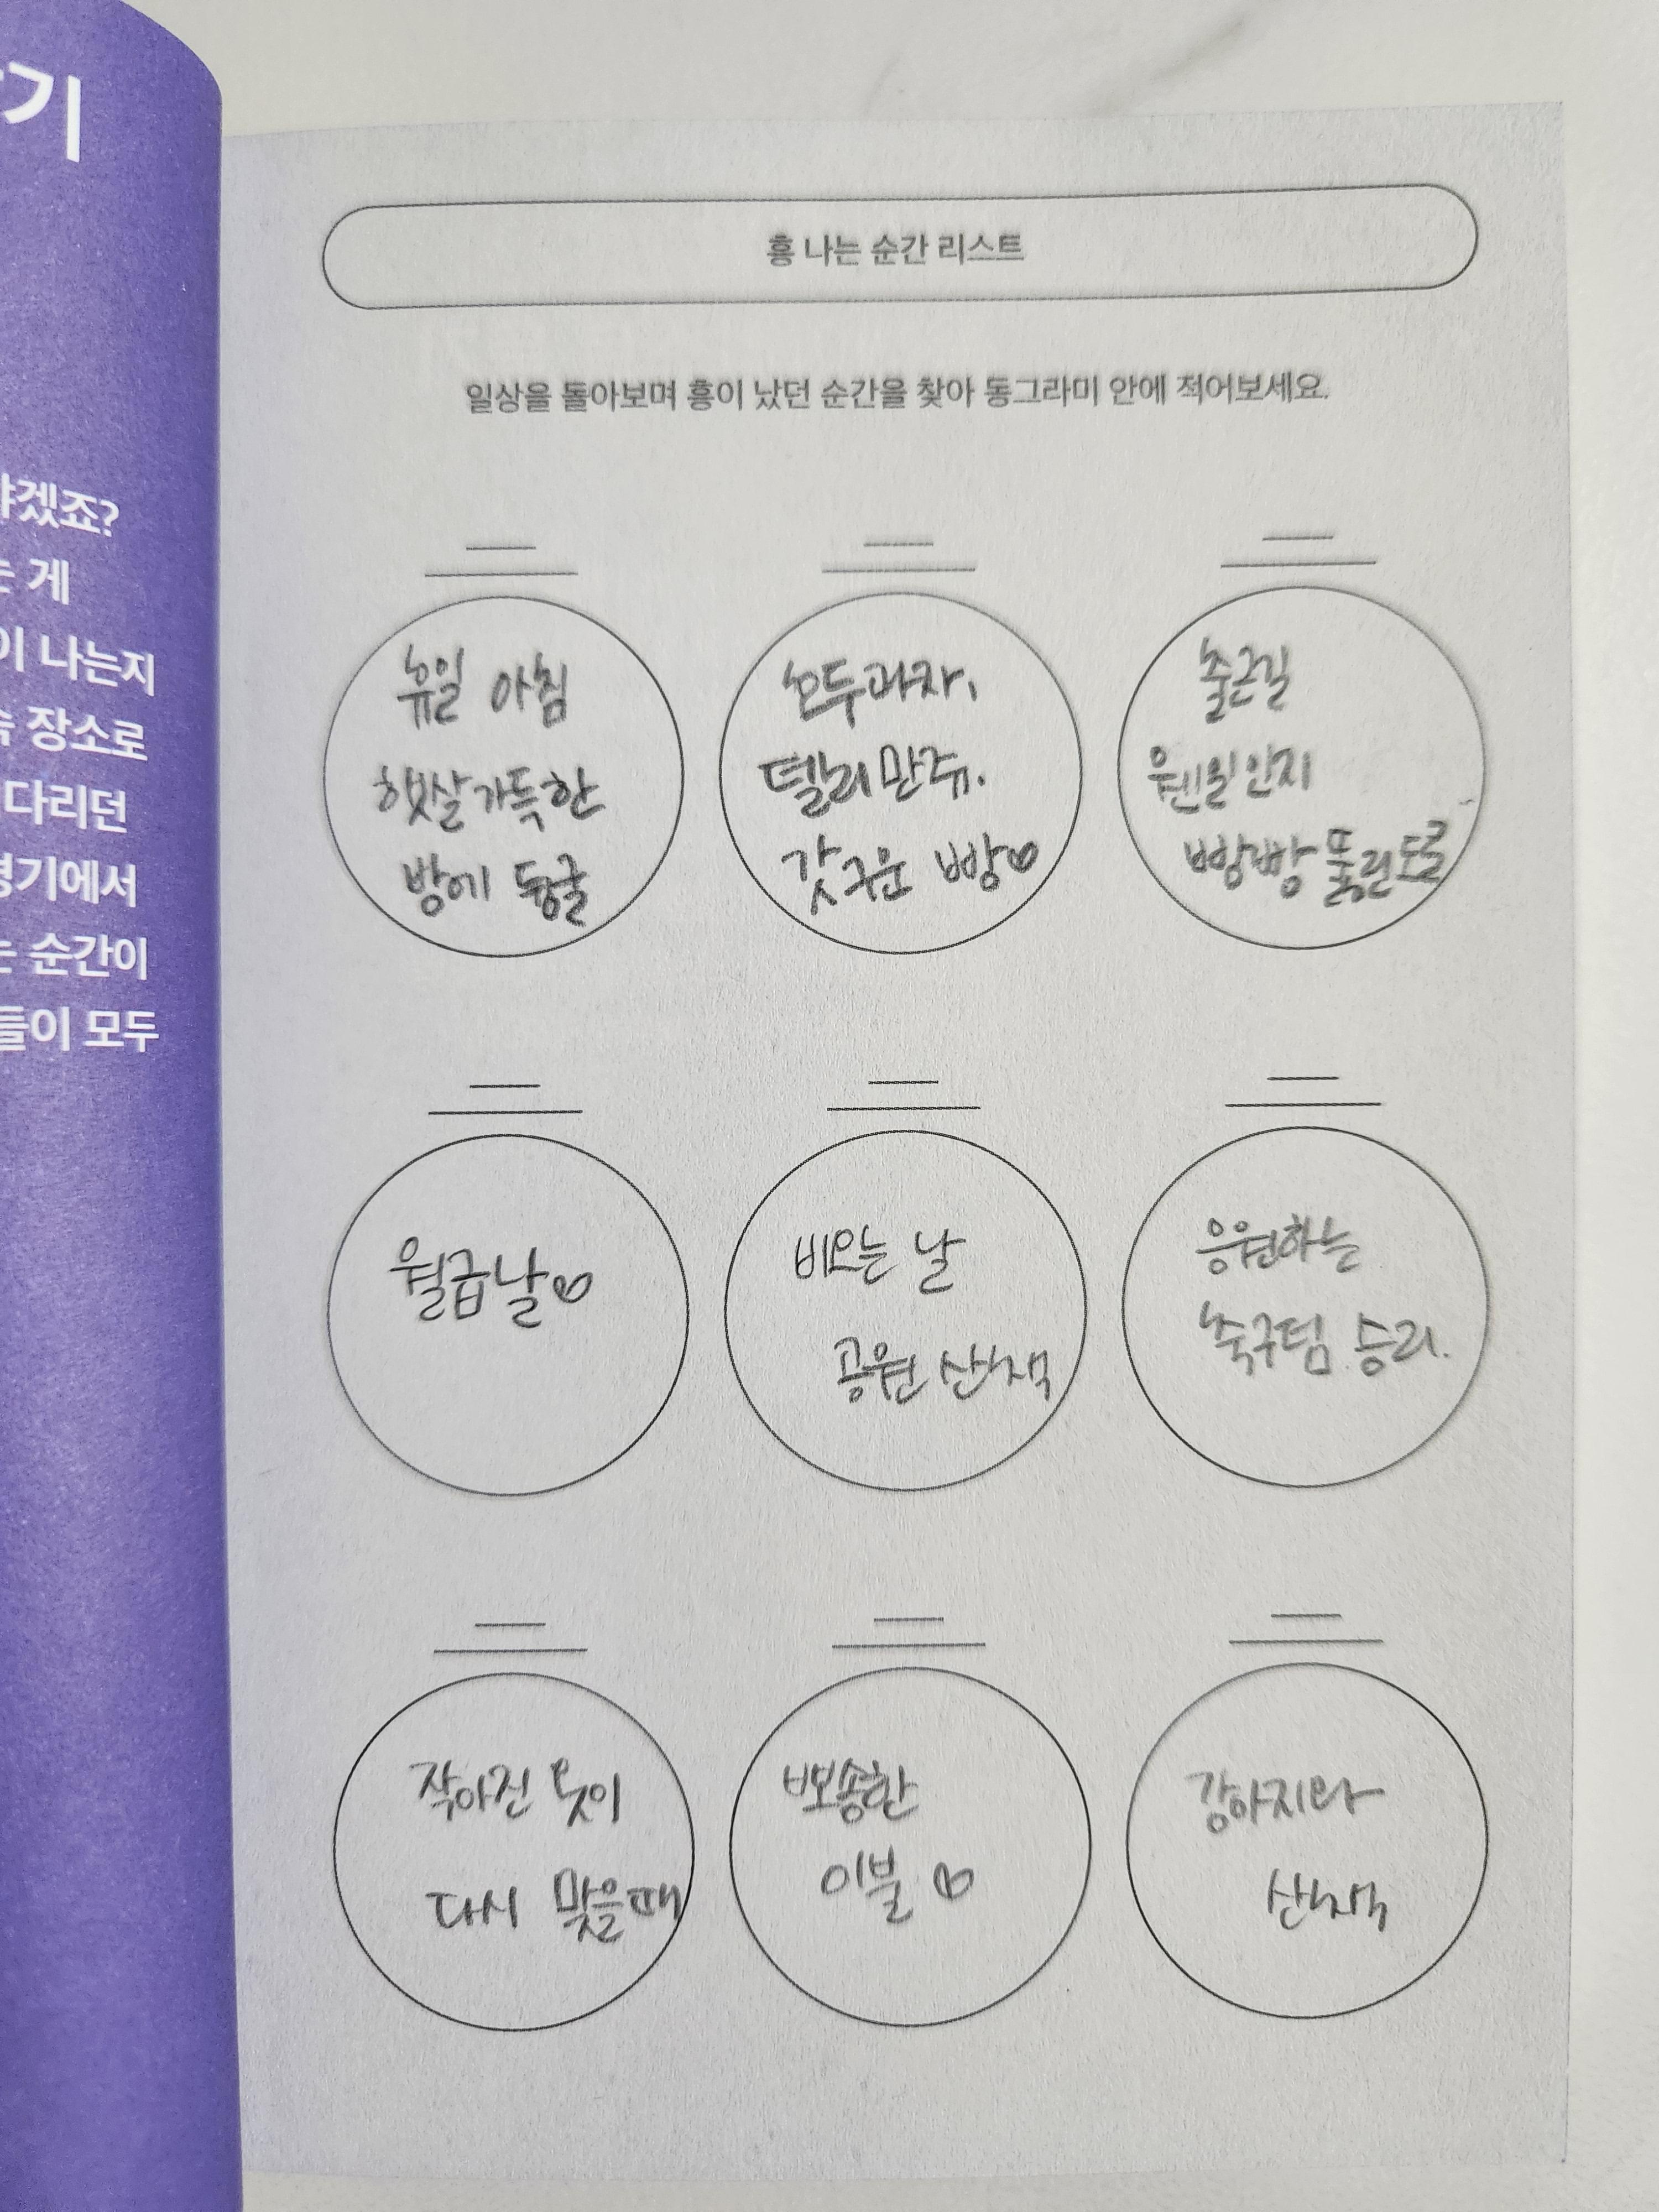 기
야겠죠?
는 게
이 나는지
속 장소로
다리던
경기에서
는 순간이
들이 모두
흥 나는 순간 리스트
일상을 돌아보며 흥이 났던 순간을 찾아 동그라미 안에 적어보세요.
휴일 아침
햇살가득한
방에 뒹굴
호두과자,
델리만쥬.
갓구운 빵♡
출근길
웬일인지
빵빵 뚫린도로
월급날♡
비오는 날
공원 산책
응원하는
축구팀 승리.
작아진 옷이
다시 맞을때
뽀송한
이불 ♡
강아지와
산책